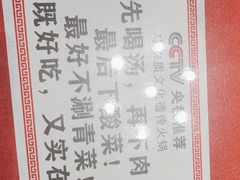 CCTV 央视推荐
物质文化遗传火锅
先喝汤,再下肉
最后下酸菜!
最好不涮青菜!
既好吃,又实在